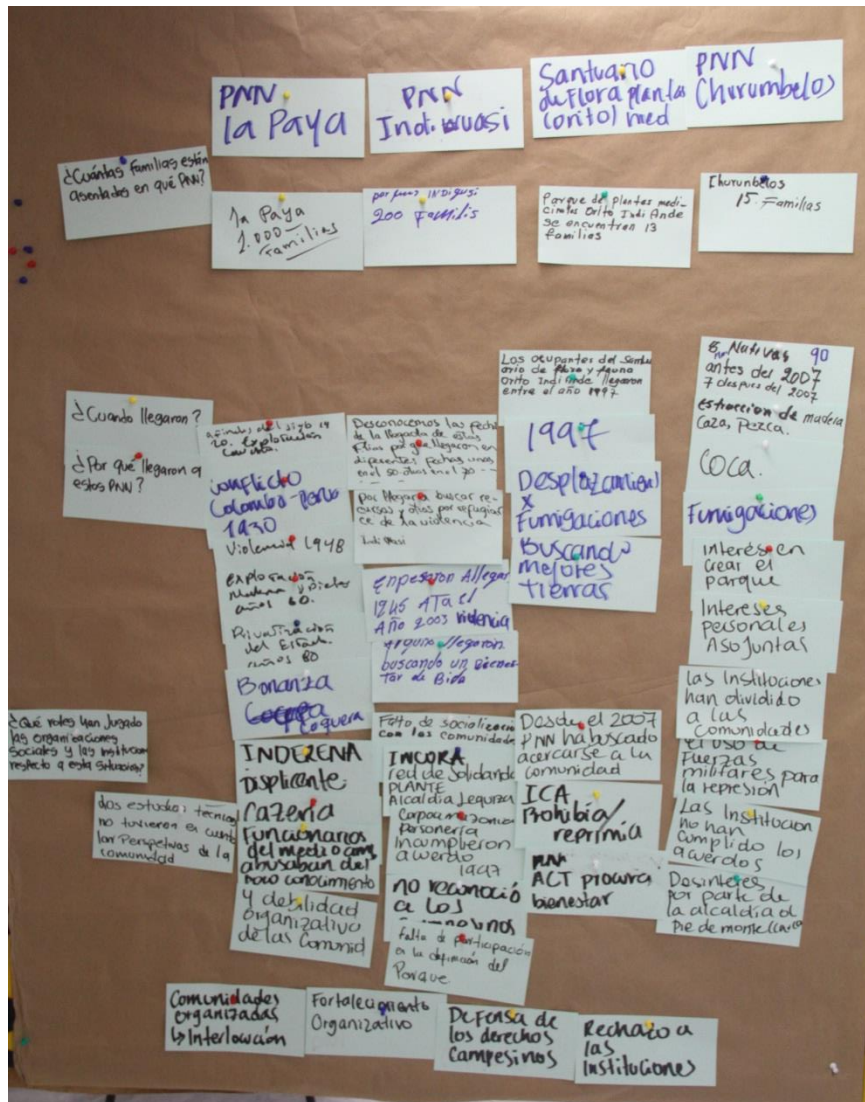 PNN
la Paya
PNN
Indi wasi
Santuario
de Flora Plantas
(orito) med
PNN
Churumbelos
¿Cuántas familias están
asentadas en qué PNN?
la Paya
1.000
Familias
200 Familis
Parque de plantes medi-
cinales Orito Indi Ande
se encuentran 13
familias
Churunbelos
15. Familias
¿Cuando llegaron?
¿Por qué llegaron a
estos PNN?
20. Explotación
Conflicto
Colombo-Peru
1930
Violencia 1948
Explotación
Madera y Pieles
años 60.
Privatización
del Estado.
años 80
Bonanza
Coquera
Desconocemos las fech
de la llegada de estas
flias por que llegaron en
diferentes fechas unos
en el 50 otros en el 70
por llegar a buscar re-
cursos y otros por refugiar
ce de la violencia
Indi Wasi
Enpesaron Allegar
1245 ATA el
Año 2003 violencia
llegaron
buscando un bienes
Tar de Bida
Los ocupantes del Santu
ario de flora y fauna
Orito Indi Ande llegaron
entre el año 1997
1997
Desplazamiento
x
Fumigaciones
Buscando
mejores
tierras
Nativas 90
antes del 2007
7 despues del 2007
estraccion de madera
Caza, Pezca.
COCA.
Fumigaciones
Interés en
crear el
parque
Intereses
personales
Asojuntas
¿Qué roles han Jugado
las organizaciones
Sociales y las institucion
respecto a esta situación?
Los estudios técnicos
no tuvieron en cuenta
las Perspetivas de la
comunidad
INDERENA
Displicente
Cazeria
Funcionarios
del medio amb
abusaban del
poco conocimiento
y debilidad
organizativo
de las Comunid
Falta de socializacio
con las comunidade
INCORA
red de Solidarida
PLANTE
Alcaldia Leguiza
Corpoamazonia
Personería
Incumplieron
acuerdo
1997
no reconoció
a los
Falta de participación
a la definición del
Parque
Desde el 2007
PNN ha buscado
acercarse a la
comunidad
ICA
Prohibia/
reprimia
PNN
ACT procura
bienestar
las Instituciones
han dividido
a las
Comunidades
el uso de
Fuerzas
militares para
la represión
Las Institucion
no han
cumplido los
acuerdos
Desinteres
por parte de
la alcaldia d
Pie de monte
Comunidades
organizadas
↳ Interlocución
Fortalecimiento
Organizativo
Defensa de
los derechos
Campesinos
Rechazo a
las
Instituciones